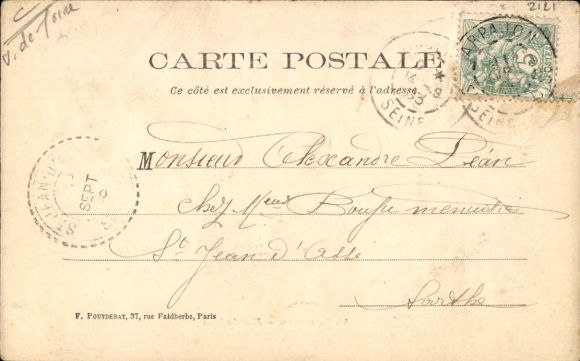 2121
V. de Loire
CARTE POSTALE
Ce côté est exclusivement réservé à l'adresse.
ARPAJON
SEINE
14
03
SEINE
Monsieur Alexandre Péan
chez Mr Roufu menuisier
St Jean d'Assé
Sarthe
ST JEAN
SEPT
F. POUYDEBAT, 37, rue Faidherbe, Paris